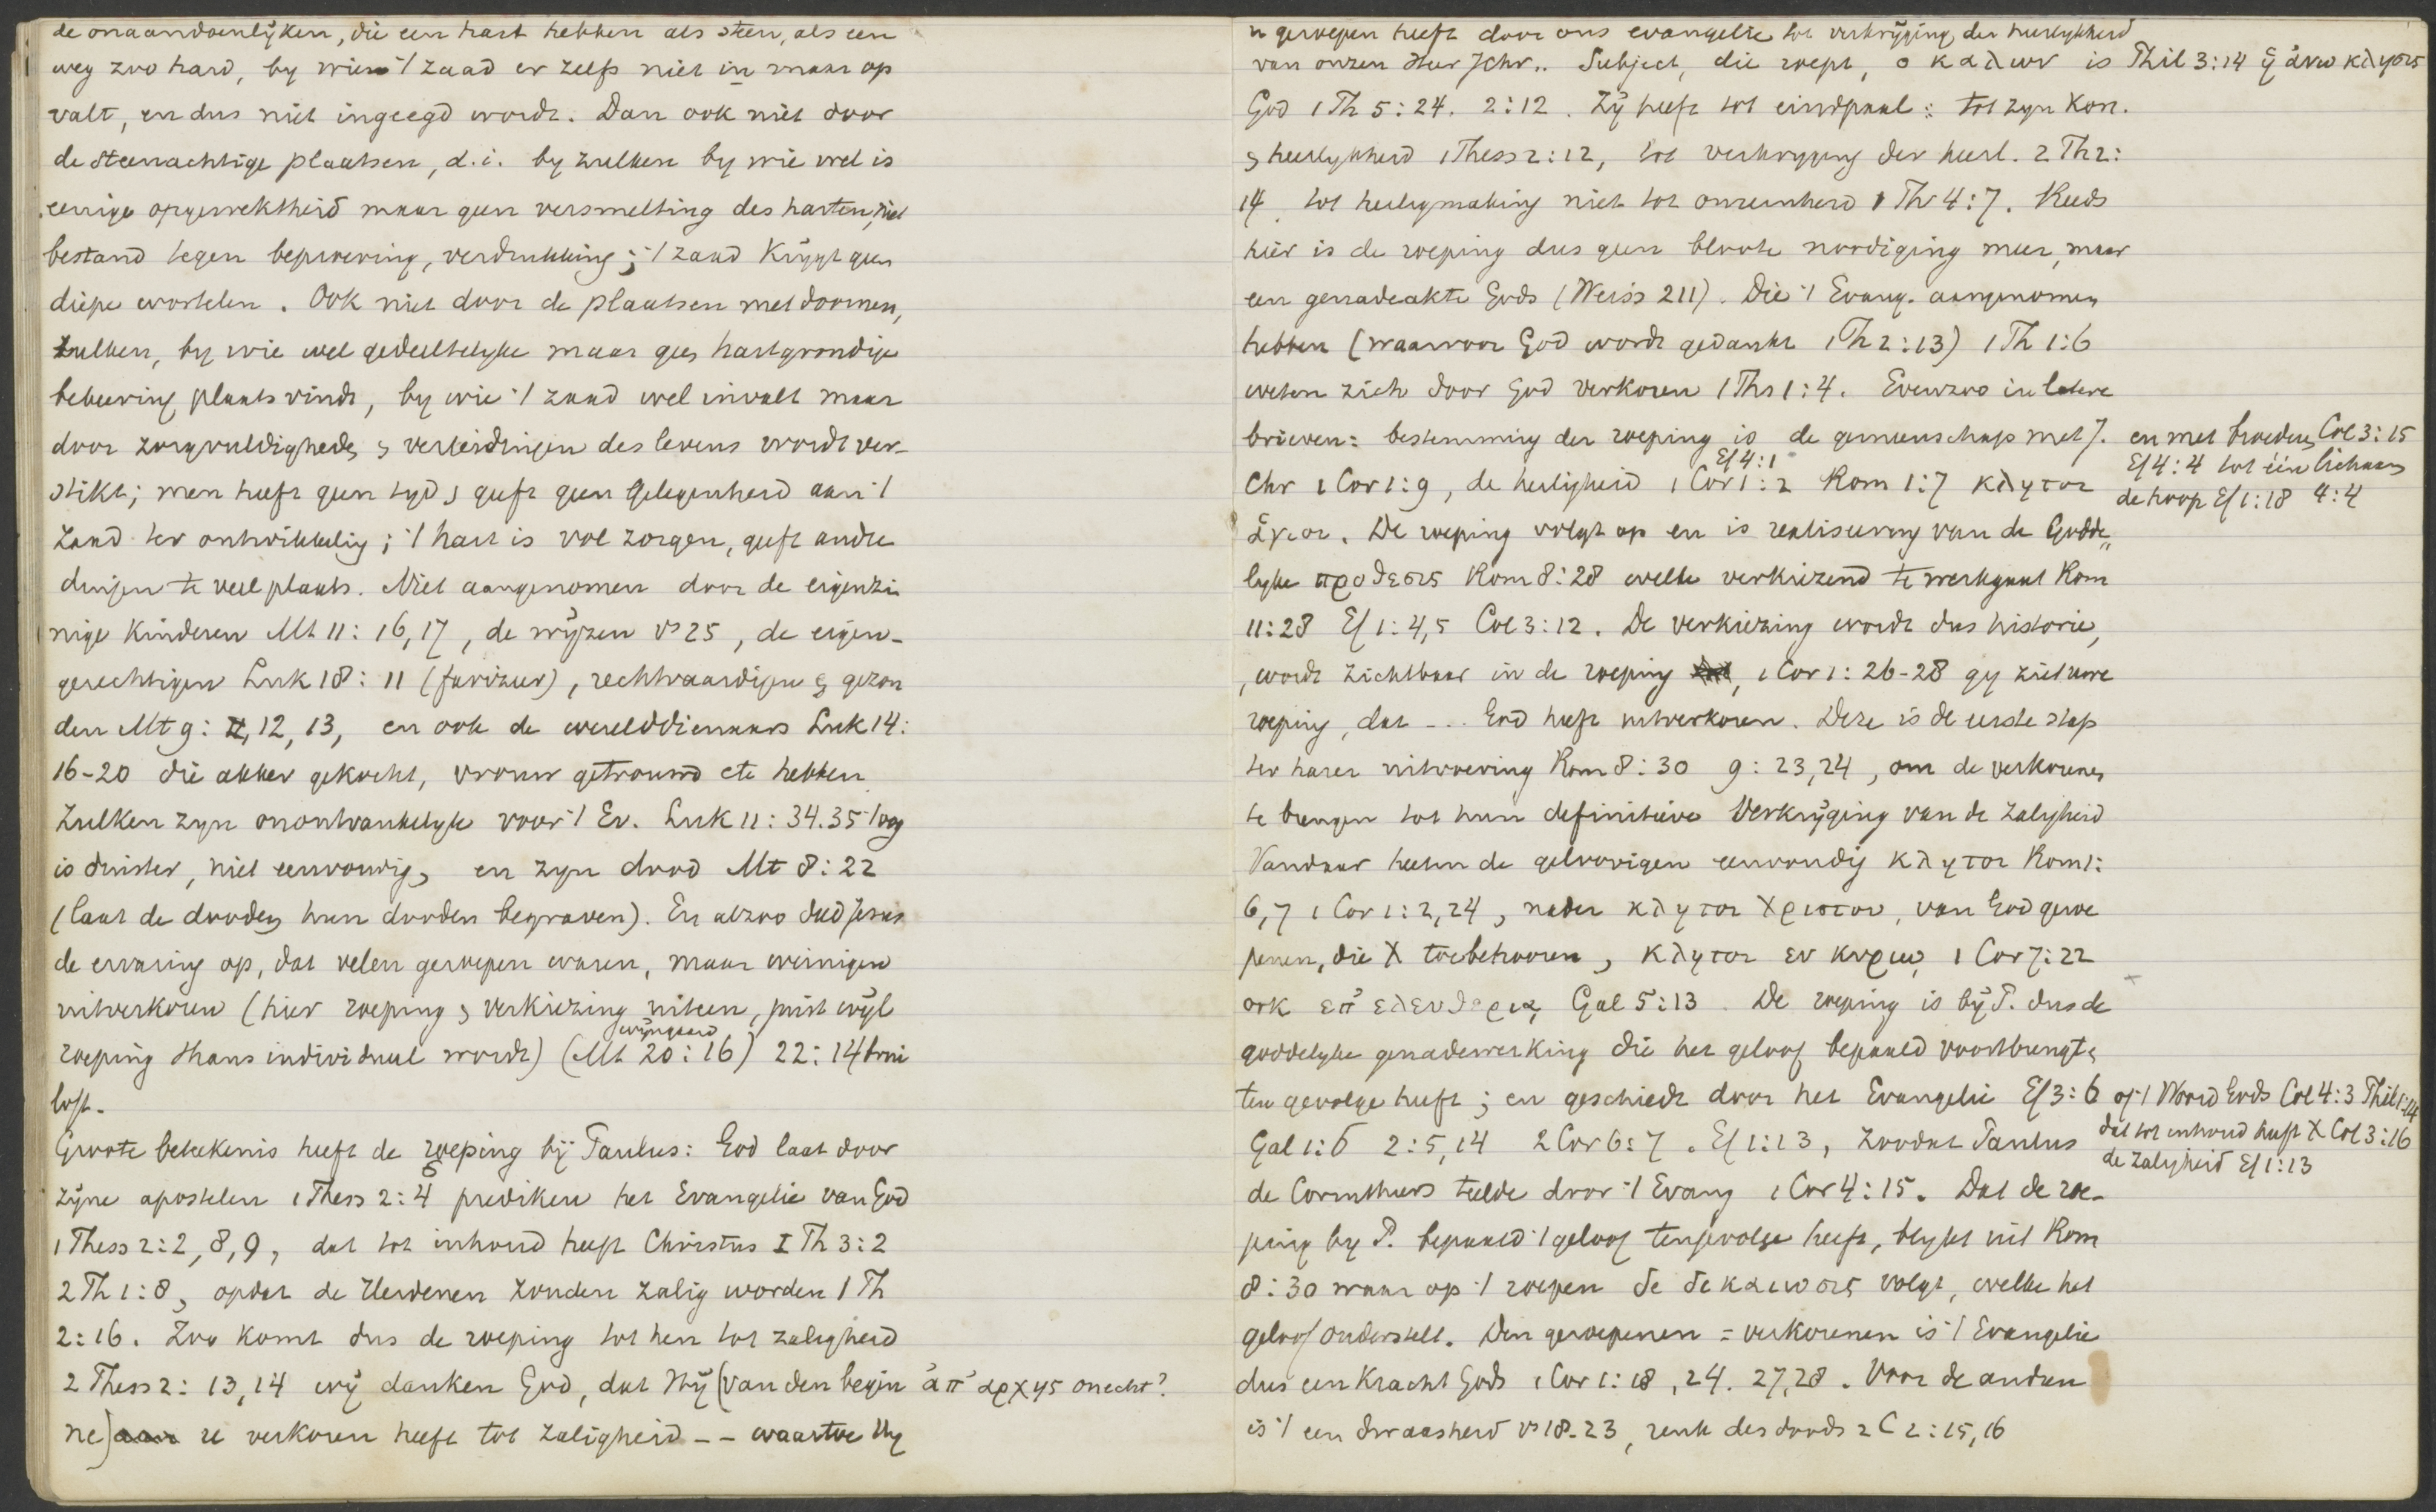 de onaandoenlijken, die een hart hebben als steen, als een
weg zoo hard, by wien 't zaad er zelfs niet in maar op
valt, en dus niet ingeegd wordt. Dan ook niet door
de steenachtige plaatsen, d.i. by zulken by wie wel is
eenige opgewektheid maar geen versmelting des harten, niet
bestand tegen beproeving, verdrukking; 't zaad krijgt geen
diepe wortelen. Ook niet door de plaatsen met doornen,
zulken, by wie wel gedeeltelyke maar geen hartgrondige
bekeering plaats vindt, by wie 't zaad wel invalt maar
door zorgvuldigheden & verleidingen des levens wordt ver-
stikt; men heeft geen tyd & geeft geen gelegenheid aan 't
zaad ter ontwikkeling; 't hart is vol zorgen, geeft andre
dingen te veel plaats. Niet aangenomen door de eigenzin
nige kinderen Mt 11: 16,17, de wijzen vs 25, de eigen-
gerechtigen Luk 18: 11 (farizeer), rechtvaardigen & gezon
den Mt 9: 12, 13, en ook de werelddienaars Luk 14:
16-20 die akker gekocht, vrouw getrouwd etc hebben
Zulken zyn onontvankelyk voor 't Ev. Luk 11: 34.35 't oog
is duister, niet eenvoudig, en zyn dood Mt 8: 22
(laat de dooden hun dooden begraven). En alzoo deed Jezus
de ervaring op, dat velen geroepen waren, maar weinigen
uitverkoren (hier roeping & verkiezing uiteen, juist wijl
wijngaard
roeping thans individueel wordt) (Mt 20: 16) 22: 14 brui
loft.
Groote beteekenis heeft de roeping bij Paulus: God laat door
zijne apostelen 1 Thess 2: 4 prediken het Evangelie van God
1 Thess 2: 2, 8, 9, dat tot inhoud heeft Christus I Th 3: 2
2 Th 1: 8, opdat de Heidenen zouden zalig worden 1 Th
2: 16. Zoo komt dus de roeping tot hen tot zaligheid
2 Thess 2: 13, 14 wij danken God, dat Hij (van den begin ἀπ' αρχης onecht?
ne) u verkoren heeft tot zaligheid -- waartoe Hy
u geroepen heeft door ons evangelie tot verkrijging der heerlykheid
van onzen Heer JChr.. Subject, die roept, ο καλων is Phil 3: 14 ἡ ἀνω κλησις
God 1 Th 5: 24. 2: 12. Zij heeft tot eindpaal: tot zyn Kon.
& heerlykheid 1 Thess 2: 12, tot verkryging der heerl. 2 Th 2:
14, tot heiligmaking niet tot onreinheid 1 Th 4: 7. Reeds
hier is de roeping dus geen bloote noodiging meer, maar
een genadeakte Gods (Weiss 211). Die 't Evang. aangenomen
hebben (waarvoor God wordt gedankt 1 Th 2: 13) 1 Th 1: 6
weten zich door God verkoren 1 Ths 1: 4. Evenzoo in latere
brieven: bestemming der roeping is de gemeenschap met J. en met broeders Col 3: 15
Ef 4: 1 Ef 4: 4 tot één lichaam
Chr 1 Cor 1: 9, de heiligheid 1 Cor 1: 2 Rom 1: 7 κλητοι de hoop Ef 1: 18 4: 4
ἁγιοι. De roeping volgt op en is realiseering van de Godde„
lyke προθεσις Rom 8: 28 welke verkiezend te werk gaat Rom
11: 28 Ef 1: 4,5 Col 3: 12. De verkiezing wordt dus historie,
, wordt zichtbaar in de roeping, 1 Cor 1: 26-28 gy ziet uwe
roeping, dat -.. God heeft uitverkoren. Deze is de eerste stap
ter harer uitvoering Rom 8: 30 9: 23,24, om de verkorenen
te brengen tot hun definitieve Verkrijging van de zaligheid
Vandaar heeten de geloovigen eenvoudig κλητοι Rom 1:
6,7 1 Cor 1: 2, 24, nader κλητοι Χριστου, van God geroe
penen, die X toebehooren, κλητοι εν κυριω 1 Cor 7: 22
ook επ' ελευθερια Gal 5: 13. De roeping is bij P. dus de
goddelyke genadewerking die het geloof bepaald voortbrengt &
ten gevolge heeft; en geschiedt door het Evangelie Ef 3: 6 of 't Woord Gods Col 4: 3 Phil 1: 14
Gal 1: 6 2: 5, 14 2 Cor 6: 7. Ef 1: 13, zoodat Paulus dat tot inhoud heeft X Col 3: 16
de zaligheid Ef 1: 13
de Corinthiers teelde door 't Evang 1 Cor 4: 15. Dat de roe-
ping by P. bepaald 't geloof tengevolge heeft, blykt uit Rom
8: 30 waar op 't roepen de δικαιωσις volgt, welke het
geloof onderstelt. Den geroepenen = verkorenen is 't Evangelie
dus een kracht Gods 1 Cor 1: 18, 24. 27,28. Voor de andren
is 't een dwaasheid vs 18-23, reuk des doods 2 C 2: 15, 16